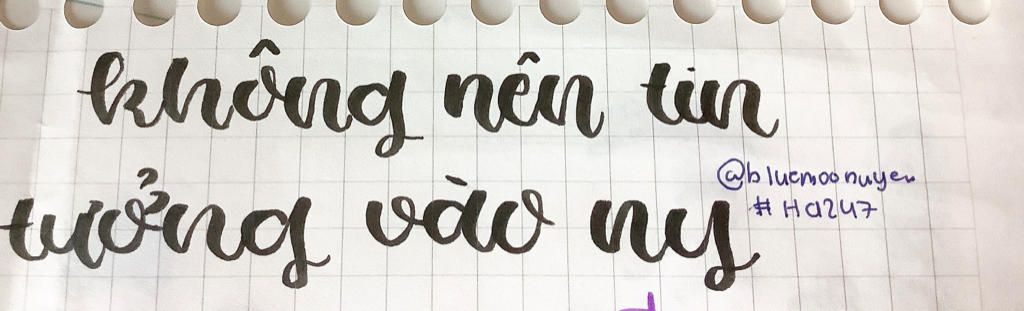 không nên tin
tưởng vào ny
@bluemoonuyen
# Ha247